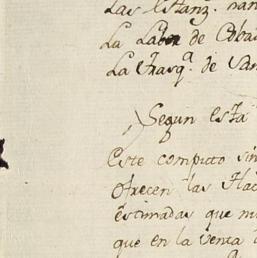 Las Estanz.
La Labor de
La Frasq.ª de San
Segun esta
Este computo sin
ofrecen las Hac
estimadas que
que en la venta